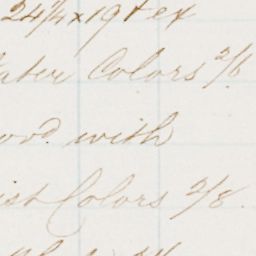 24¼ x 19 + ex
ater Colors 2/6
ood with
ist Colors 2/8.